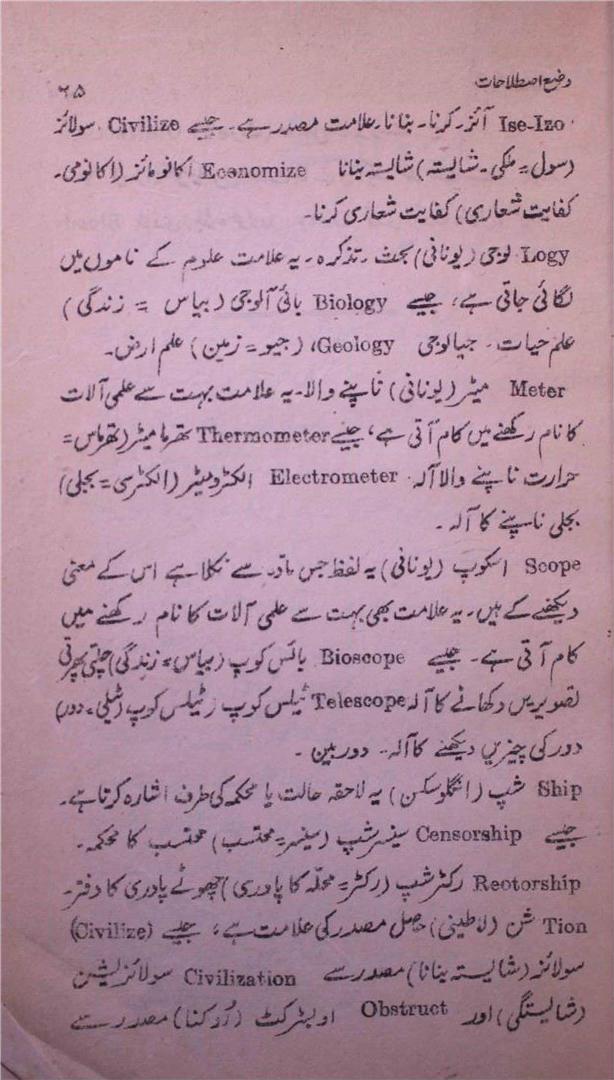 وضع اصطلاحات
۶۵
Ise-Izo آئز۔ کرنا۔ بنانا۔ علامت مصدر ہے۔ جیسے Civilize سولائز
(سول = ملکی۔ شایستہ) شایستہ بنانا Economize اکانومائز (اکانومی۔
کفایت شعاری) کفایت شعاری کرنا۔
Logy لوجی (یونانی) بحث۔ تذکرہ۔ یہ علامت علوم کے ناموں میں
لگائی جاتی ہے، جیسے Biology بائی آلوجی (بیاس = زندگی)
علم حیات۔ جیالوجی Geology، (جیو = زمین) علم ارض۔
Meter میٹر (یونانی) ناپنے والا۔ یہ علامت بہت سے علمی آلات
کا نام رکھنے میں کام آتی ہے، جیسے Thermometer تھرمامیٹر (تھرماس =
حرارت ناپنے والا آلہ۔ Electrometer الکٹرومیٹر (الکٹرسی = بجلی)
بجلی ناپنے کا آلہ۔
Scope اسکوپ (یونانی) یہ لفظ جس مادہ سے نکلا ہے اس کے معنی
دیکھنے کے ہیں۔ یہ علامت بھی بہت سے علمی آلات کا نام رکھنے میں
کام آتی ہے۔ جیسے Bioscope بائس کوپ (بیاس = زندگی) چلتی پھرتی
تصویریں دکھانے کا آلہ Telescope ٹیلس کوپ (ٹیلی = دور)
دور کی چیزیں دیکھنے کا آلہ۔ دوربین۔
Ship شپ (انگلوسکسن) یہ لاحقہ حالت یا محکمہ کی طرف اشارہ کرتا ہے۔
جیسے Censorship سینسرشپ (سینسر = محتسب) محتسب کا محکمہ۔
Rectorship رکٹرشپ (رکٹر = محلہ کا پادری) چھوٹے پادری کا دفتر۔
Tion شن (لاطینی) حاصل مصدر کی علامت ہے، جیسے (Civilize)
سولائز (شایستہ بنانا) مصدر سے Civilization سولائزیشن
(شایستگی) اور Obstruct اوبسٹرکٹ (روکنا) مصدر سے